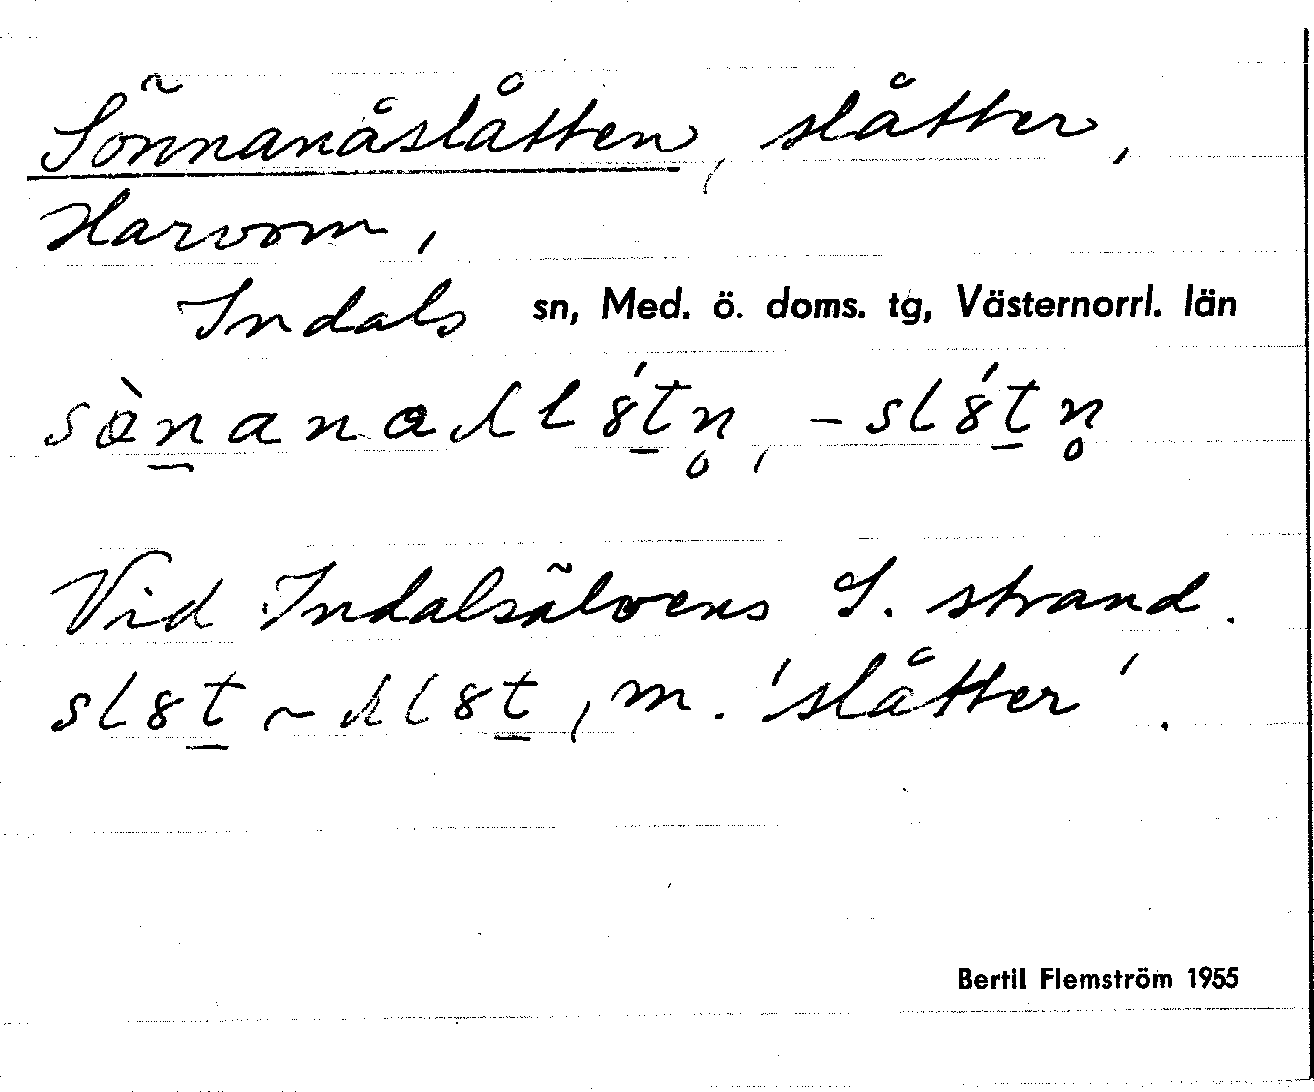 Sönnanåslåtten, slåtter,
Harvom,
Indals sn, Med. ö. doms. tg, Västernorrl. län
Vid Indalsälvens S. strand.
slȣt̲ ~ ʃlȣt̲, m. 'slåtter'.
Bertil Flemström 1955